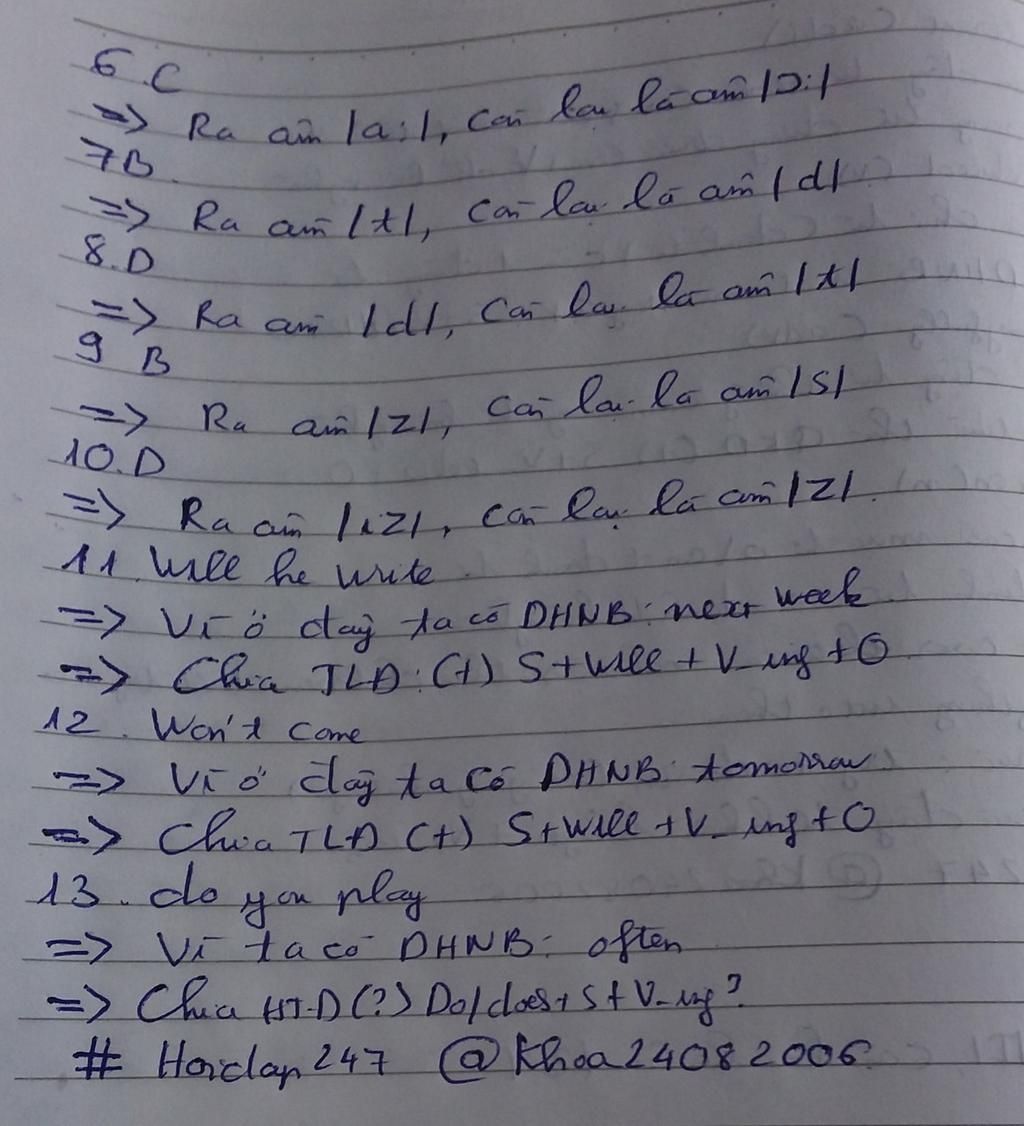 6.C
=> Ra âm /a:/, còn lại là âm /ɔ:/
7B.
=> Ra âm /t/, còn lại là âm /d/
8.D
=> Ra âm /d/, còn lại là âm /t/
9 B
=> Ra âm /z/, còn lại là âm /s/
10.D
=> Ra âm /ɪz/, còn lại là âm /z/.
11. Will he write
=> Vì ở đây ta có DHNB: next week
=> Chia TLĐ: (+) S+will+V_ing+O
12. Won't come
=> Vì ở đây ta có DHNB: tomorrow
=> Chia TLĐ (+) S+will+V_ing+O
13. do you play
=> Vì ta có DHNB: often
=> Chia HTĐ (?) Do/does+S+V-ing?
# Hoidap247 @Khoa24082006